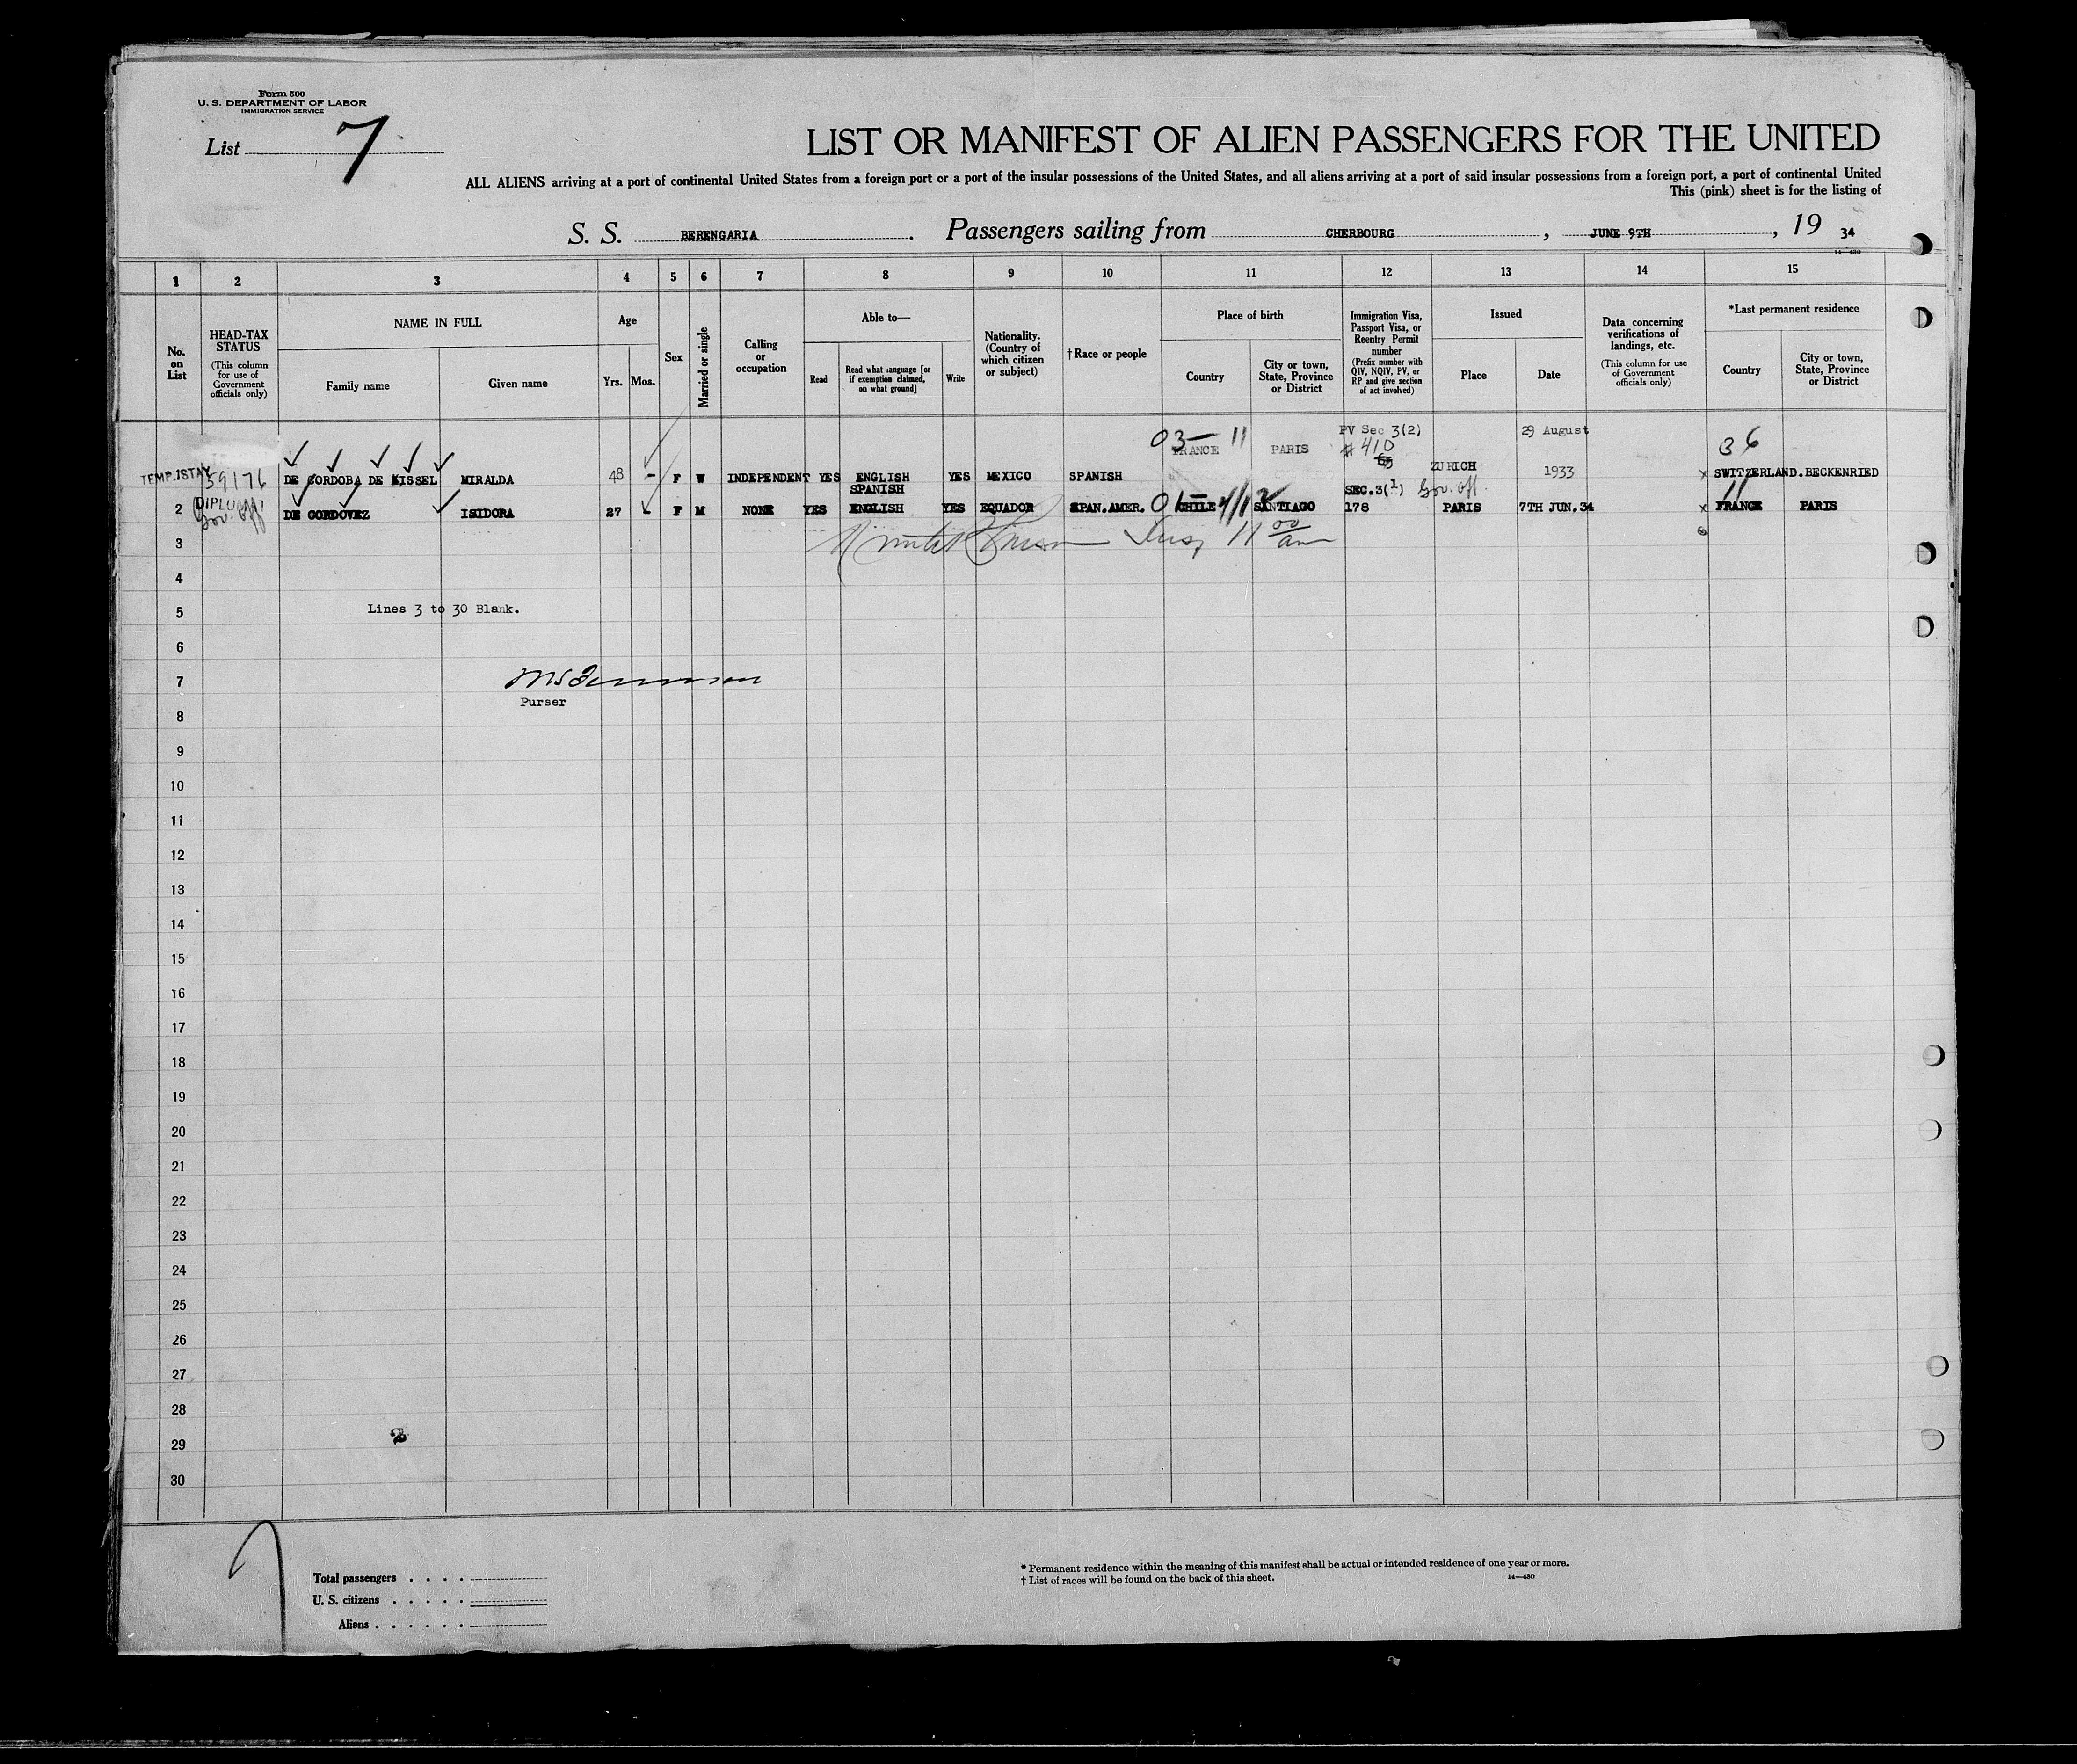 Form 500
U. S. DEPARTMENT OF LABOR
IMMIGRATION SERVICE
List 7
LIST OR MANIFEST OF ALIEN PASSENGERS FOR THE UNITED
ALL ALIENS arriving at a port of continental United States from a foreign port or a port of the insular possessions of the United States, and all aliens arriving at a port of said insular possessions from a foreign port, a port of continental United
This (pink) sheet is for the listing of
S. S. BERENGARIA. Passengers sailing from CHERBOURG, JUNE 9TH, 19 34
14—430
1 2 3 4 5 6 7 8 9 10 11 12 13 14 15
No. on List
HEAD-TAX STATUS (This column for use of Government officials only)
NAME IN FULL
Family name
Given name
Age
Yrs. Mos.
Sex
Married or single
Calling or occupation
Able to—
Read
Read what language [or if exemption claimed, on what ground]
Write
Nationality. (Country of which citizen or subject)
†Race or people
Place of birth
Country
City or town, State, Province or District
Immigration Visa, Passport Visa, or Reentry Permit number (Prefix number with QIV, NQIV, PV, or RP and give section of act involved)
Issued
Place
Date
Data concerning verifications of landings, etc. (This column for use of Government officials only)
*Last permanent residence
Country
City or town, State, Province or District
03— 11 PV Sec 3(2) 29 August 36
FRANCE PARIS # 410
TEMP.1STAY 59176 DE CORDOBA DE KISSEL MIRALDA 48 - F W INDEPENDENT YES ENGLISH YES MEXICO SPANISH ZURICH 1933 x SWITZERLAND. BECKENRIED
DIPLOMAT SPANISH SEC.3(1) Gov. Off. 11
2 Gov. Off DE CORDOVEZ ISIDORA 27 - F M NONE YES ENGLISH YES EQUADOR SPAN.AMER. CHILE SANTIAGO 178 PARIS 7TH JUN.34 x FRANCE PARIS
3 Insp 11 00 am
4
5 Lines 3 to 30 Blank.
6
7
Purser
8
9
10
11
12
13
14
15
16
17
18
19
20
21
22
23
24
25
26
27
28
29 2
30
Total passengers . . . .
U. S. citizens . . . . .
Aliens . . . . . .
* Permanent residence within the meaning of this manifest shall be actual or intended residence of one year or more.
† List of races will be found on the back of this sheet. 14—430